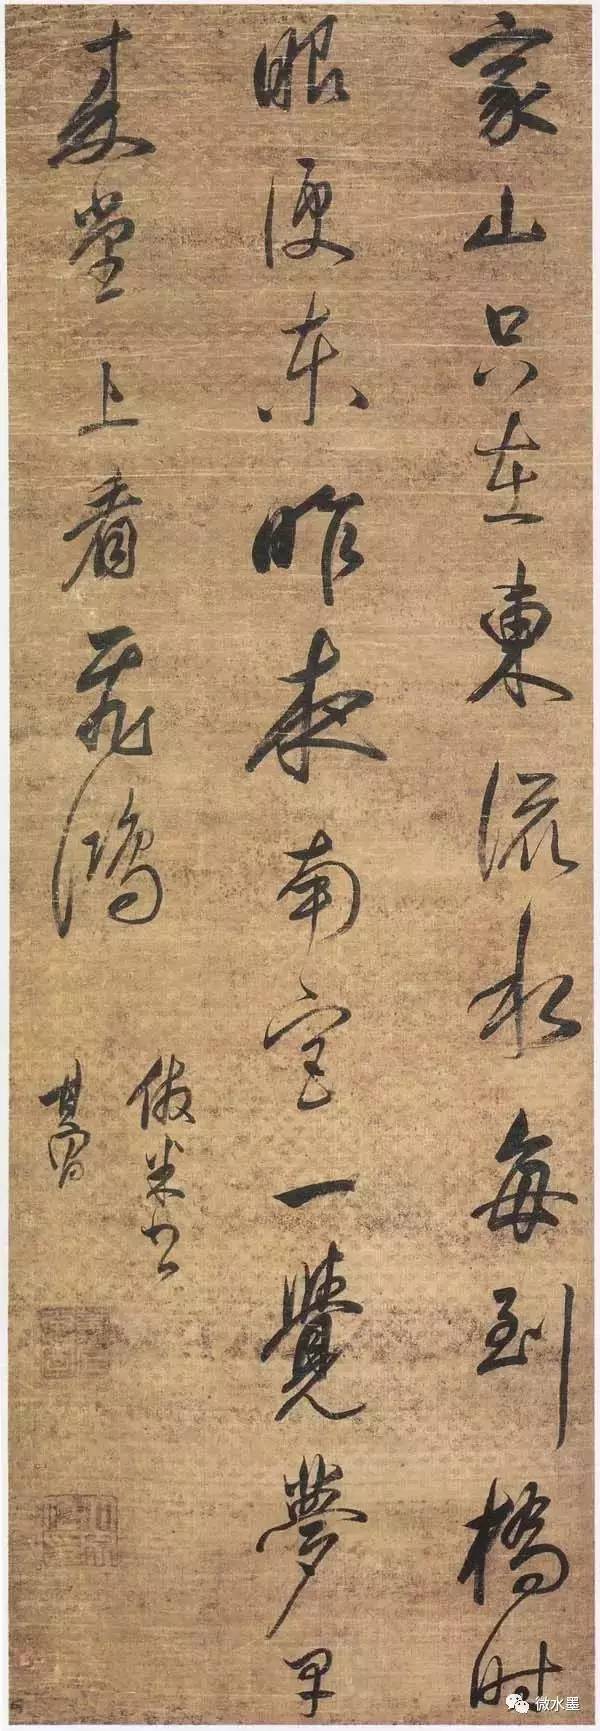 家山只在東流水每到橋時
眼便東昨夜南宮一覺夢早
來堂上看飛鴻
倣米書
其昌
微水墨